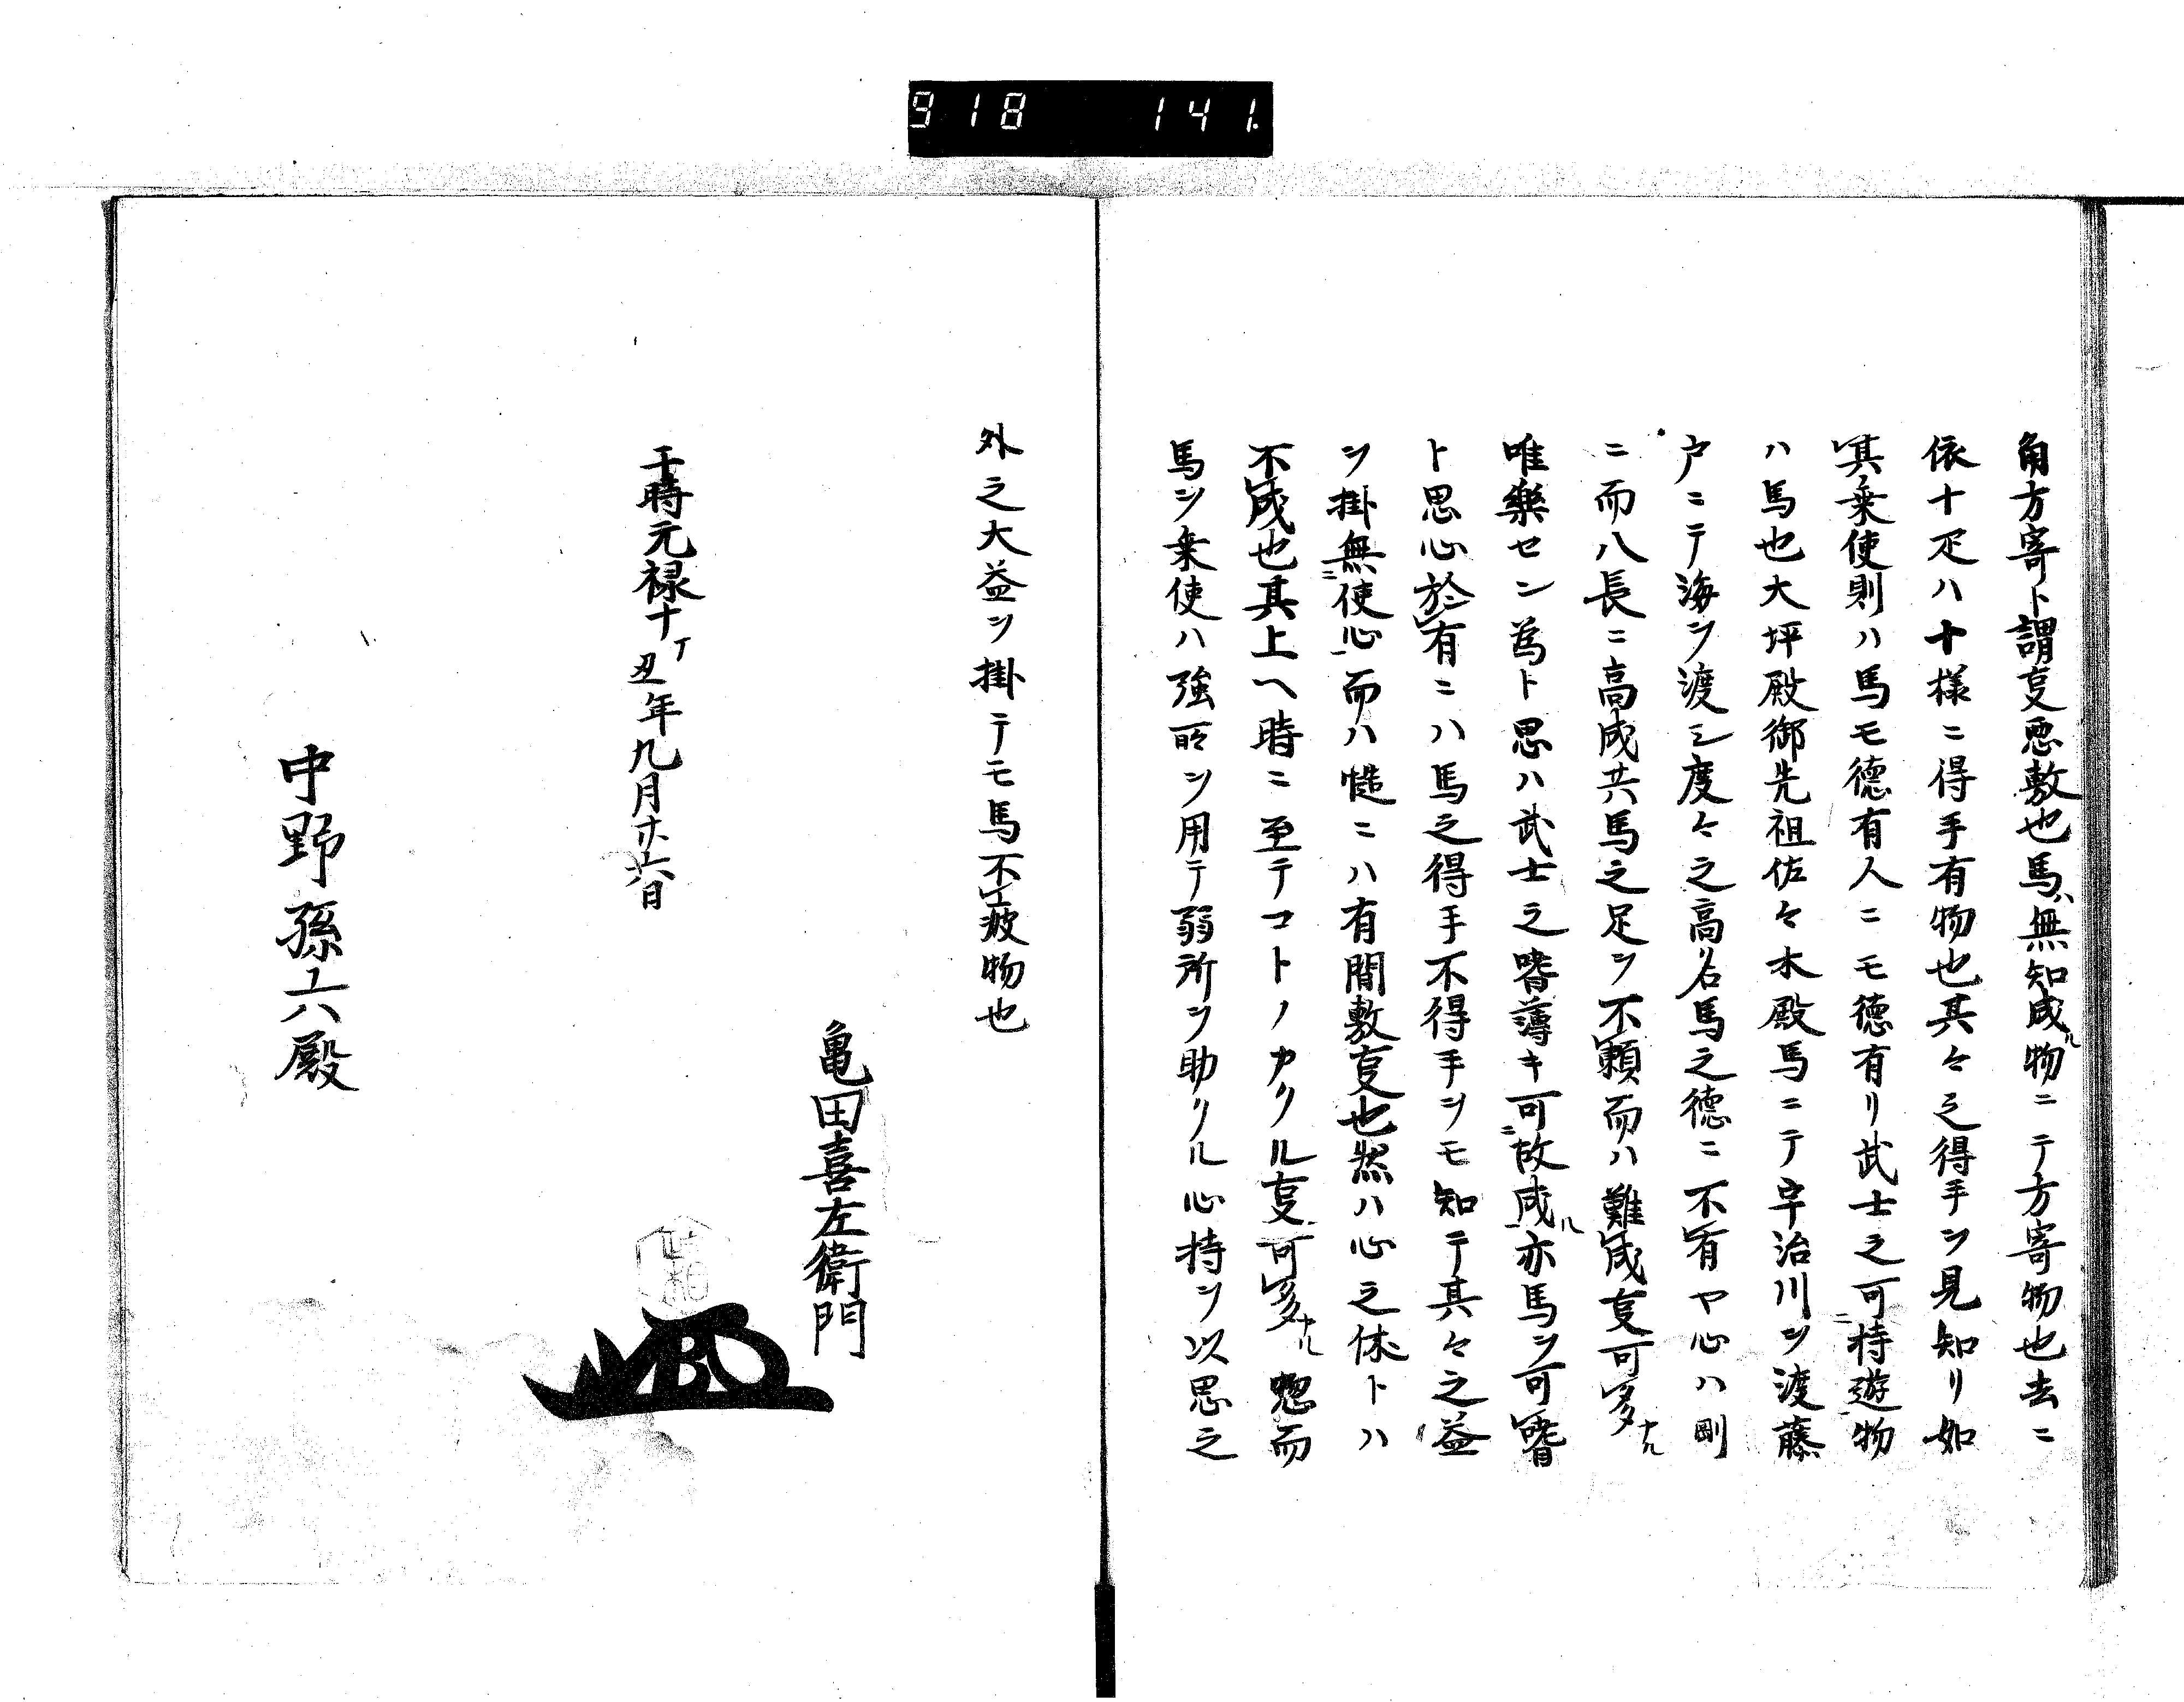 918 141.
角方寄ト謂叓悪敷也馬ハ無知成ル物ニテ方寄物也去ニ
依十疋ハ十様ニ得手有物也其々之得手ヲ見知リ如
其乗使則ハ馬モ德有人ニモ德有リ武士之可ニ持遊物
ハ馬也大坪殿御先祖佐々木殿馬ニテ宇治川ヲ渡藤
戸ニテ海ヲ渡シ度々之高名馬之德ニ不有ヤ心ハ剛
ニ而八長ニ高成共馬之足ヲ不頼而ハ難成叓可多ナル
唯樂セン為ト思ハ武士之嗜薄キ可ニ故成ル亦馬ヲ可嗜
ト思心於有ニハ馬之得手不得手ヲモ知テ其々之益
ヲ掛無ニ使心而ハ慥ニハ有間敷叓也然ハ心之休トハ
不成也其上ヘ時ニ至テコトノカクル叓可多ナル惣而
馬ヲ乗使ハ強所ヲ用テ弱所ヲ助クル心持ヲ以思之
外之大益ヲ掛テモ馬不疲物也
亀田喜左衛門
于時元禄十丁丑年九月廿六日
中野孫六殿